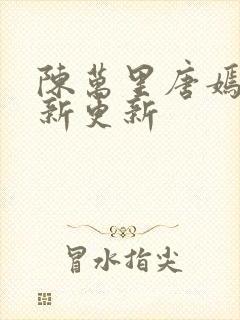 陳萬里唐嫣
新更新
冒水指尖